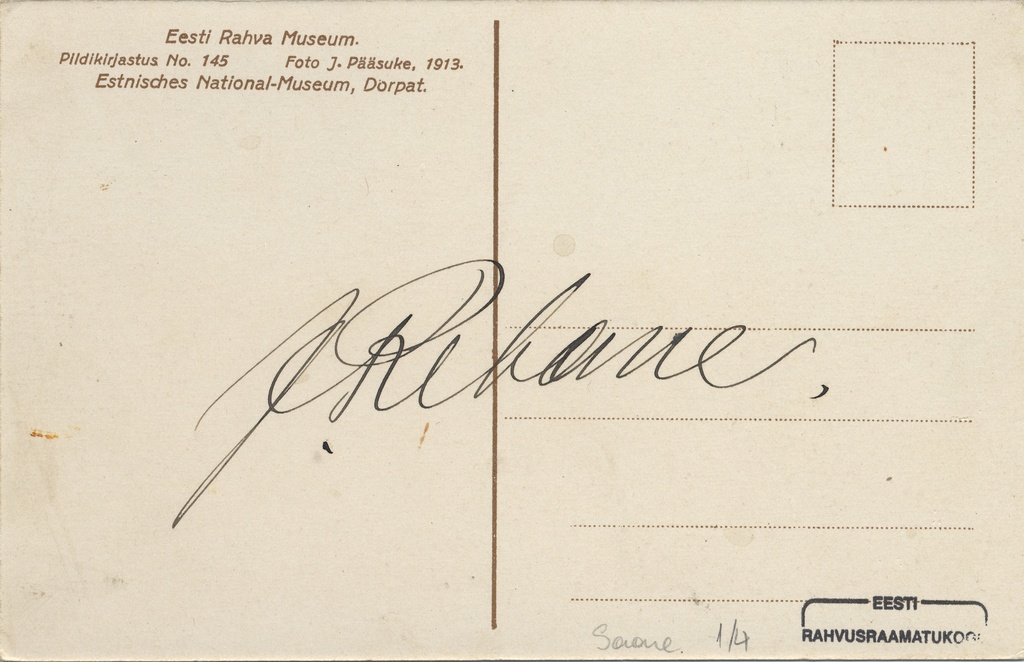 Eesti Rahva Museum.
Pildikirjastus No. 145 Foto J. Pääsuke, 1913.
Estnisches National-Museum, Dorpat.
J. Rehane.
Saare. 1/4
EESTI
RAHVUSRAAMATUKOGU